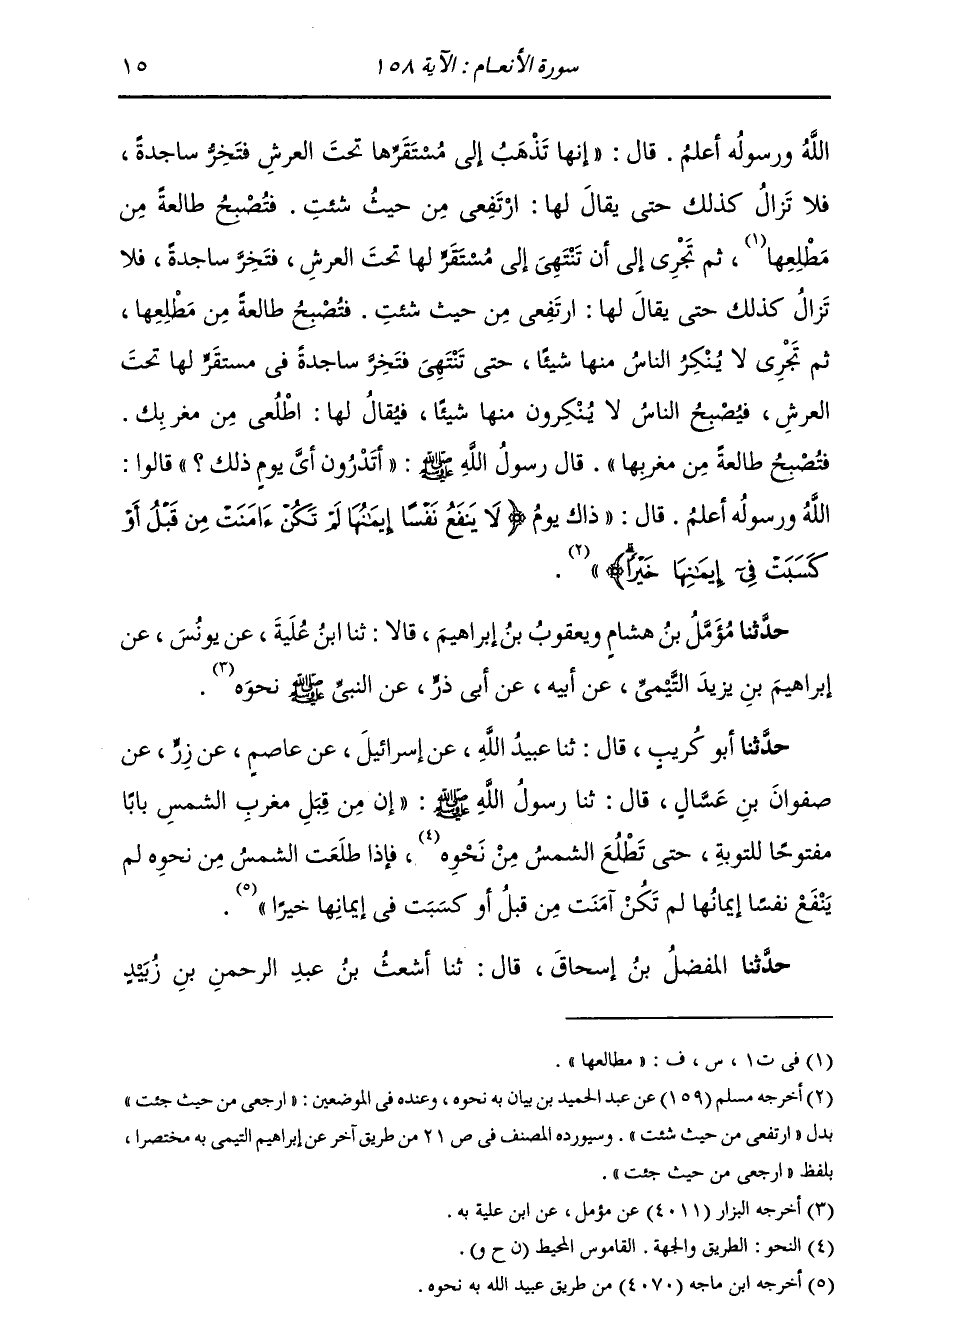 سورة الأنعام : الآية ١٥٨ ١٥
اللَّهُ ورسولُه أعلمُ . قال : « إنها تَذْهَبُ إلى مُسْتَقَرِّها تحتَ العرشِ فتَخِرُّ ساجدةً ،
فلا تَزالُ كذلك حتى يقالَ لها : ارْتَفِعى مِن حيثُ شئتِ . فتُصْبِحُ طالعةً مِن
مَطْلِعِها(١) ، ثم تَجْرِى إلى أن تَنْتَهِىَ إلى مُسْتَقَرٍّ لها تحتَ العرشِ ، فتَخِرَّ ساجدةً ، فلا
تَزالُ كذلك حتى يقالَ لها : ارتَفِعى مِن حيث شئتِ . فتُصْبِحُ طالعةً مِن مَطْلِعِها ،
ثم تَجْرِى لا يُنْكِرُ الناسُ منها شيئًا ، حتى تَنْتَهِىَ فتَخِرَّ ساجدةً فى مستقَرٍّ لها تحتَ
العرشِ ، فيُصْبِحُ الناسُ لا يُنْكِرون منها شيئًا ، فيُقالُ لها : اطْلُعى مِن مغربِك .
فتُصْبِحُ طالعةً مِن مغربِها » . قال رسولُ اللَّهِ ﷺ : « أتَدْرُون أىَّ يومٍ ذلك ؟ » قالوا :
اللَّهُ ورسولُه أعلمُ . قال : « ذاك يومُ ﴿ لَا يَنفَعُ نَفْسًا إِيمَٰنُهَا لَمْ تَكُنْ ءَامَنَتْ مِن قَبْلُ أَوْ
كَسَبَتْ فِىٓ إِيمَٰنِهَا خَيْرًا ﴾ »(٢) .
حدَّثنا مُؤَمَّلُ بنُ هشامٍ ويعقوبُ بنُ إبراهيمَ ، قالا : ثنا ابنُ عُلَيةَ ، عن يونُسَ ، عن
إبراهيمَ بنِ يزيدَ التَّيْمىِّ ، عن أبيه ، عن أبى ذرٍّ ، عن النبىِّ ﷺ نحوَه(٣) .
حدَّثنا أبو كُريبٍ ، قال : ثنا عبيدُ اللَّهِ ، عن إسرائيلَ ، عن عاصمٍ ، عن زِرٍّ ، عن
صفوانَ بنِ عَسَّالٍ ، قال : ثنا رسولُ اللَّهِ ﷺ : « إن مِن قِبَلِ مغربِ الشمسِ بابًا
مفتوحًا للتوبةِ ، حتى تَطْلُعَ الشمسُ مِنْ نَحْوِه(٤) ، فإذا طلَعَت الشمسُ مِن نحوِه لم
يَنْفَعْ نفسًا إيمانُها لم تَكُنْ آمَنَت مِن قبلُ أو كسَبَت فى إيمانِها خيرًا »(٥) .
حدَّثنا المفضلُ بنُ إسحاقَ ، قال : ثنا أشعثُ بنُ عبدِ الرحمنِ بنِ زُبَيْدٍ
(١) فى ت١ ، س ، ف : « مطالعها » .
(٢) أخرجه مسلم (١٥٩) عن عبد الحميد بن بيان به نحوه ، وعنده فى الموضعين : « ارجعى من حيث جئت »
بدل « ارتفعى من حيث شئت » . وسيورده المصنف فى ص ٢١ من طريق آخر عن إبراهيم التيمى به مختصرا ،
بلفظ « ارجعى من حيث جئت » .
(٣) أخرجه البزار (٤٠١١) عن مؤمل ، عن ابن علية به .
(٤) النحو : الطريق والجهة . القاموس المحيط (ن ح و) .
(٥) أخرجه ابن ماجه (٤٠٧٠) من طريق عبيد الله به نحوه .